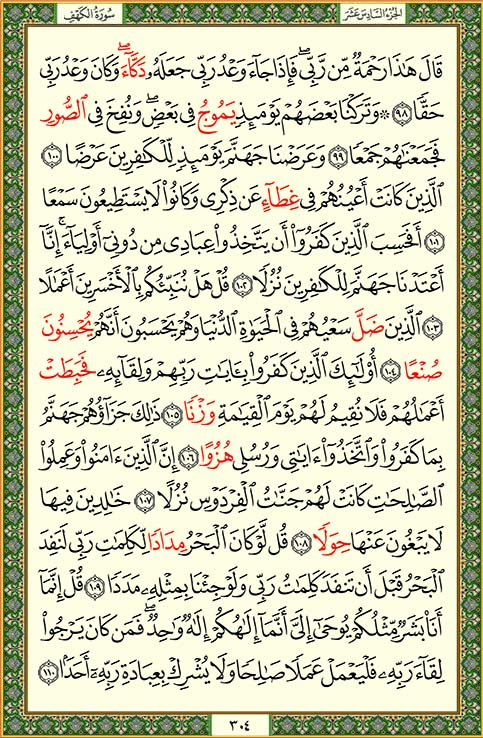 الجزء السادس عشر
سورة الكهف
قَالَ هَٰذَا رَحۡمَةٞ مِّن رَّبِّيۖ فَإِذَا جَآءَ وَعۡدُ رَبِّي جَعَلَهُۥ دَكَّآءَۖ وَكَانَ وَعۡدُ رَبِّي
حَقّٗا ٩٨ ۞ وَتَرَكۡنَا بَعۡضَهُمۡ يَوۡمَئِذٖ يَمُوجُ فِي بَعۡضٖۖ وَنُفِخَ فِي ٱلصُّورِ
فَجَمَعۡنَٰهُمۡ جَمۡعٗا ٩٩ وَعَرَضۡنَا جَهَنَّمَ يَوۡمَئِذٖ لِّلۡكَٰفِرِينَ عَرۡضًا ١٠٠
ٱلَّذِينَ كَانَتۡ أَعۡيُنُهُمۡ فِي غِطَآءٍ عَن ذِكۡرِي وَكَانُواْ لَا يَسۡتَطِيعُونَ سَمۡعًا
١٠١ أَفَحَسِبَ ٱلَّذِينَ كَفَرُوٓاْ أَن يَتَّخِذُواْ عِبَادِي مِن دُونِيٓ أَوۡلِيَآءَۚ إِنَّآ
أَعۡتَدۡنَا جَهَنَّمَ لِلۡكَٰفِرِينَ نُزُلٗا ١٠٢ قُلۡ هَلۡ نُنَبِّئُكُم بِٱلۡأَخۡسَرِينَ أَعۡمَٰلًا
١٠٣ ٱلَّذِينَ ضَلَّ سَعۡيُهُمۡ فِي ٱلۡحَيَوٰةِ ٱلدُّنۡيَا وَهُمۡ يَحۡسَبُونَ أَنَّهُمۡ يُحۡسِنُونَ
صُنۡعًا ١٠٤ أُوْلَٰٓئِكَ ٱلَّذِينَ كَفَرُواْ بِـَٔايَٰتِ رَبِّهِمۡ وَلِقَآئِهِۦ فَحَبِطَتۡ
أَعۡمَٰلُهُمۡ فَلَا نُقِيمُ لَهُمۡ يَوۡمَ ٱلۡقِيَٰمَةِ وَزۡنٗا ١٠٥ ذَٰلِكَ جَزَآؤُهُمۡ جَهَنَّمُ
بِمَا كَفَرُواْ وَٱتَّخَذُوٓاْ ءَايَٰتِي وَرُسُلِي هُزُوًا ١٠٦ إِنَّ ٱلَّذِينَ ءَامَنُواْ وَعَمِلُواْ
ٱلصَّٰلِحَٰتِ كَانَتۡ لَهُمۡ جَنَّٰتُ ٱلۡفِرۡدَوۡسِ نُزُلًا ١٠٧ خَٰلِدِينَ فِيهَا
لَا يَبۡغُونَ عَنۡهَا حِوَلٗا ١٠٨ قُل لَّوۡ كَانَ ٱلۡبَحۡرُ مِدَادٗا لِّكَلِمَٰتِ رَبِّي لَنَفِدَ
ٱلۡبَحۡرُ قَبۡلَ أَن تَنفَدَ كَلِمَٰتُ رَبِّي وَلَوۡ جِئۡنَا بِمِثۡلِهِۦ مَدَدٗا ١٠٩ قُلۡ إِنَّمَآ
أَنَا۠ بَشَرٞ مِّثۡلُكُمۡ يُوحَىٰٓ إِلَيَّ أَنَّمَآ إِلَٰهُكُمۡ إِلَٰهٞ وَٰحِدٞۖ فَمَن كَانَ يَرۡجُواْ
لِقَآءَ رَبِّهِۦ فَلۡيَعۡمَلۡ عَمَلٗا صَٰلِحٗا وَلَا يُشۡرِكۡ بِعِبَادَةِ رَبِّهِۦٓ أَحَدَۢا ١١٠
٣٠٤